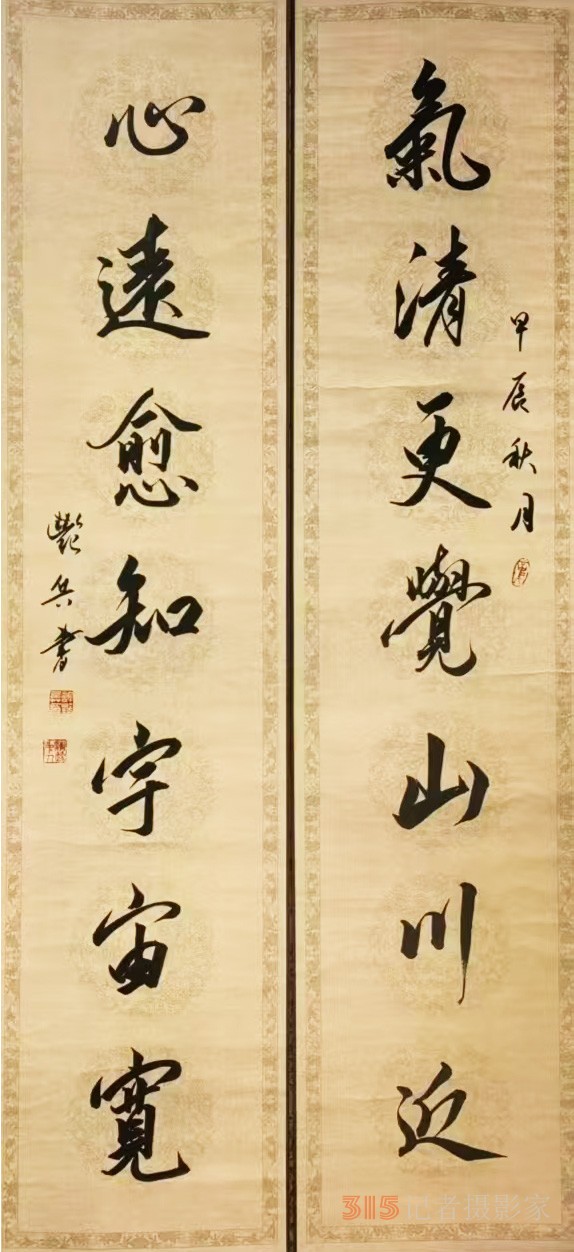 氣清更覺山川近
甲辰秋月
心遠愈知宇宙寬
艷兵書
315记者摄影家